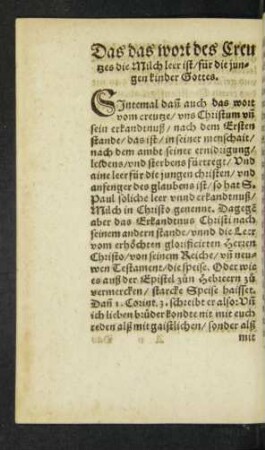 Das das wort des Creu
tzes die Milch leer ist / für die jun-
gen kinder Gottes.
SIntemal dañ auch das wort
vom creutze / vns Christum vñ
sein erkandtnuß / nach dem Ersten
stande / das ist / in seiner menschait /
nach dem ambt seiner ernidrigung /
leidens / vnd sterbens fürtregt / Vnd
aine leer für die jungen christen / vnd
anfenger des glaubens ist / so hat S.
Paul soliche leer vnnd erkandtnuß /
Milch in Christo genennt. Dagegẽ
aber das Erkandtnus Christi nach
seinem andern stande / vnnd die Leer
vom erhöchten glorificirten Herren
Christo / von seinem Reiche / vñ neu-
wen Testament / die speise. Oder wie
es auß der Epistel zůn Hebreern zů
vermercken / starcke Speise haisset.
Dañ 1. Corint. 3. schreibt er also: Vñ
ich lieben brüder kondte nit mit euch
reden alß mit gaistlichen / sonder alß
mit